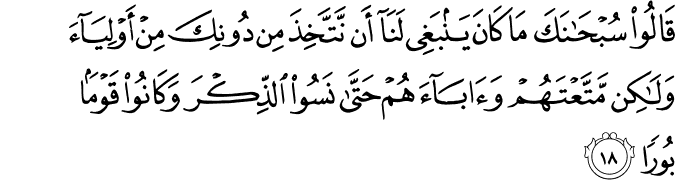 قَالُوا۟ سُبْحَـٰنَكَ مَا كَانَ يَنۢبَغِى لَنَآ أَن نَّتَّخِذَ مِن دُونِكَ مِنْ أَوْلِيَآءَ
وَلَـٰكِن مَّتَّعْتَهُمْ وَءَابَآءَهُمْ حَتَّىٰ نَسُوا۟ ٱلذِّكْرَ وَكَانُوا۟ قَوْمًۢا
بُورًا ١٨